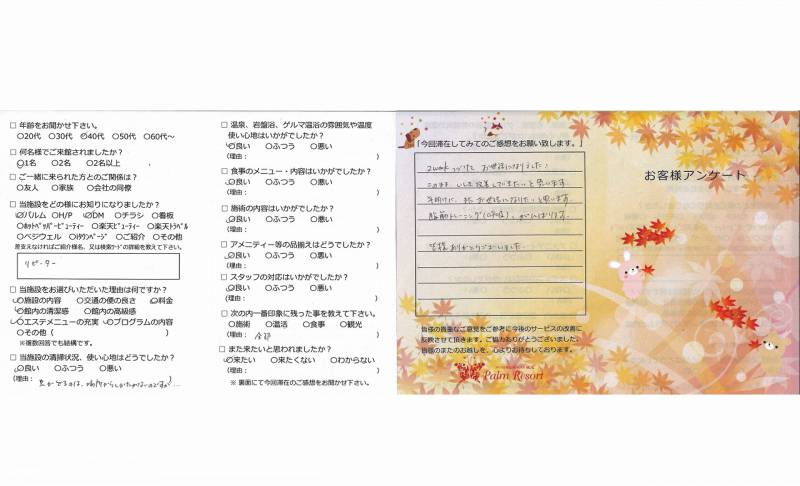 □ 年齢をお聞かせ下さい。
○20代 ○30代 ○40代 ○50代 ○60代～
□ 何名様でご来館されましたか？
○1名 ○2名 ○2名以上
□ ご一緒に来られた方とのご関係は？
○友人 ○家族 ○会社の同僚
□ 当施設をどの様にお知りになりましたか？
○パルム ○H/P ○DM ○チラシ ○看板
○ホットペッパービューティー ○楽天ビューティー ○楽天トラベル
○ベジウェル ○iタウンページ ○ご紹介 ○その他
差支えなければご紹介様名、又は検索ワードの詳細を教えて下さい。
リピーター
□ 当施設をお選びいただいた理由は何ですか？
○施設の内容 ○交通の便の良さ ○料金
○館内の清潔感 ○館内の高級感
○エステメニューの充実 ○プログラムの内容
○その他（ ）
※複数回答でも結構です。
□ 当施設の清掃状況、使い心地はどうでしたか？
○良い ○ふつう ○悪い
（理由： ）
□ 温泉、岩盤浴、ゲルマ温浴の雰囲気や温度
使い心地はいかがでしたか？
○良い ○ふつう ○悪い
（理由： ）
□ 食事のメニュー・内容はいかがでしたか？
○良い ○ふつう ○悪い
（理由： ）
□ 施術の内容はいかがでしたか？
○良い ○ふつう ○悪い
（理由： ）
□ アメニティー等の品揃えはどうでしたか？
○良い ○ふつう ○悪い
（理由： ）
□ スタッフの対応はいかがでしたか？
○良い ○ふつう ○悪い
（理由： ）
□ 次の内一番印象に残った事を教えて下さい。
○施術 ○温活 ○食事 ○観光
（理由： 全部 ）
□ また来たいと思われましたか？
○来たい ○来たくない ○わからない
（理由： ）
※ 裏面にて今回滞在のご感想をお聞かせ下さい。
「今回滞在してみてのご感想をお願い致します。」
2weekつづけて お世話になりました！
このまま いじ&改善していきたいと思います。
年明けに、また お世話になりたいと思います。
腹筋トレーニング がんばります。
皆様ありがとうございました。
皆様の貴重なご意見をご参考に今後のサービスの改善に
反映させて頂きます。ご協力ありがとうございました。
皆様のまたのお越しを、心よりお待ちしております。
Palm Resort
お客様アンケート